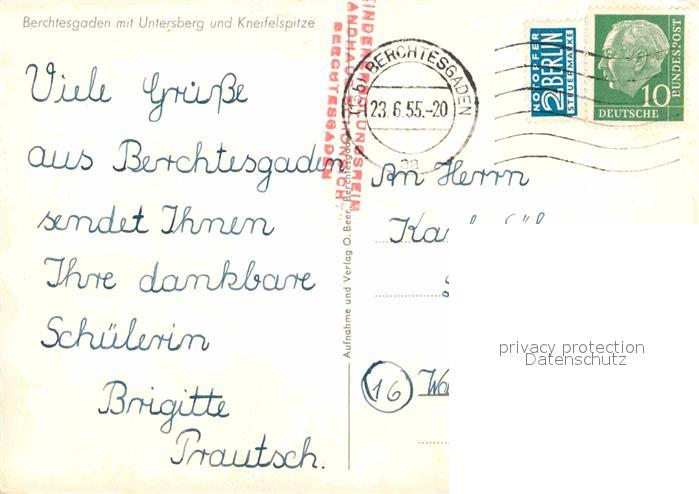 Berchtesgaden mit Untersberg und Kneifelspitze
Viele Grüße
aus Berchtesgaden
sendet Ihnen
Ihre dankbare
Schülerin
Brigitte
Prautsch.
KINDERERHOLUNGSHEIM
LANDHAUS SCHÖNSICHT
BERCHTESGADEN
Aufnahme und Verlag O. Beer, Berchtesgaden
BERCHTESGADEN
23.6.55.-20
aa
NOTOPFER
2 BERLIN
STEUERMARKE
DEUTSCHE
BUNDESPOST
10
An Herrn
Ka
16
privacy protection
Datenschutz